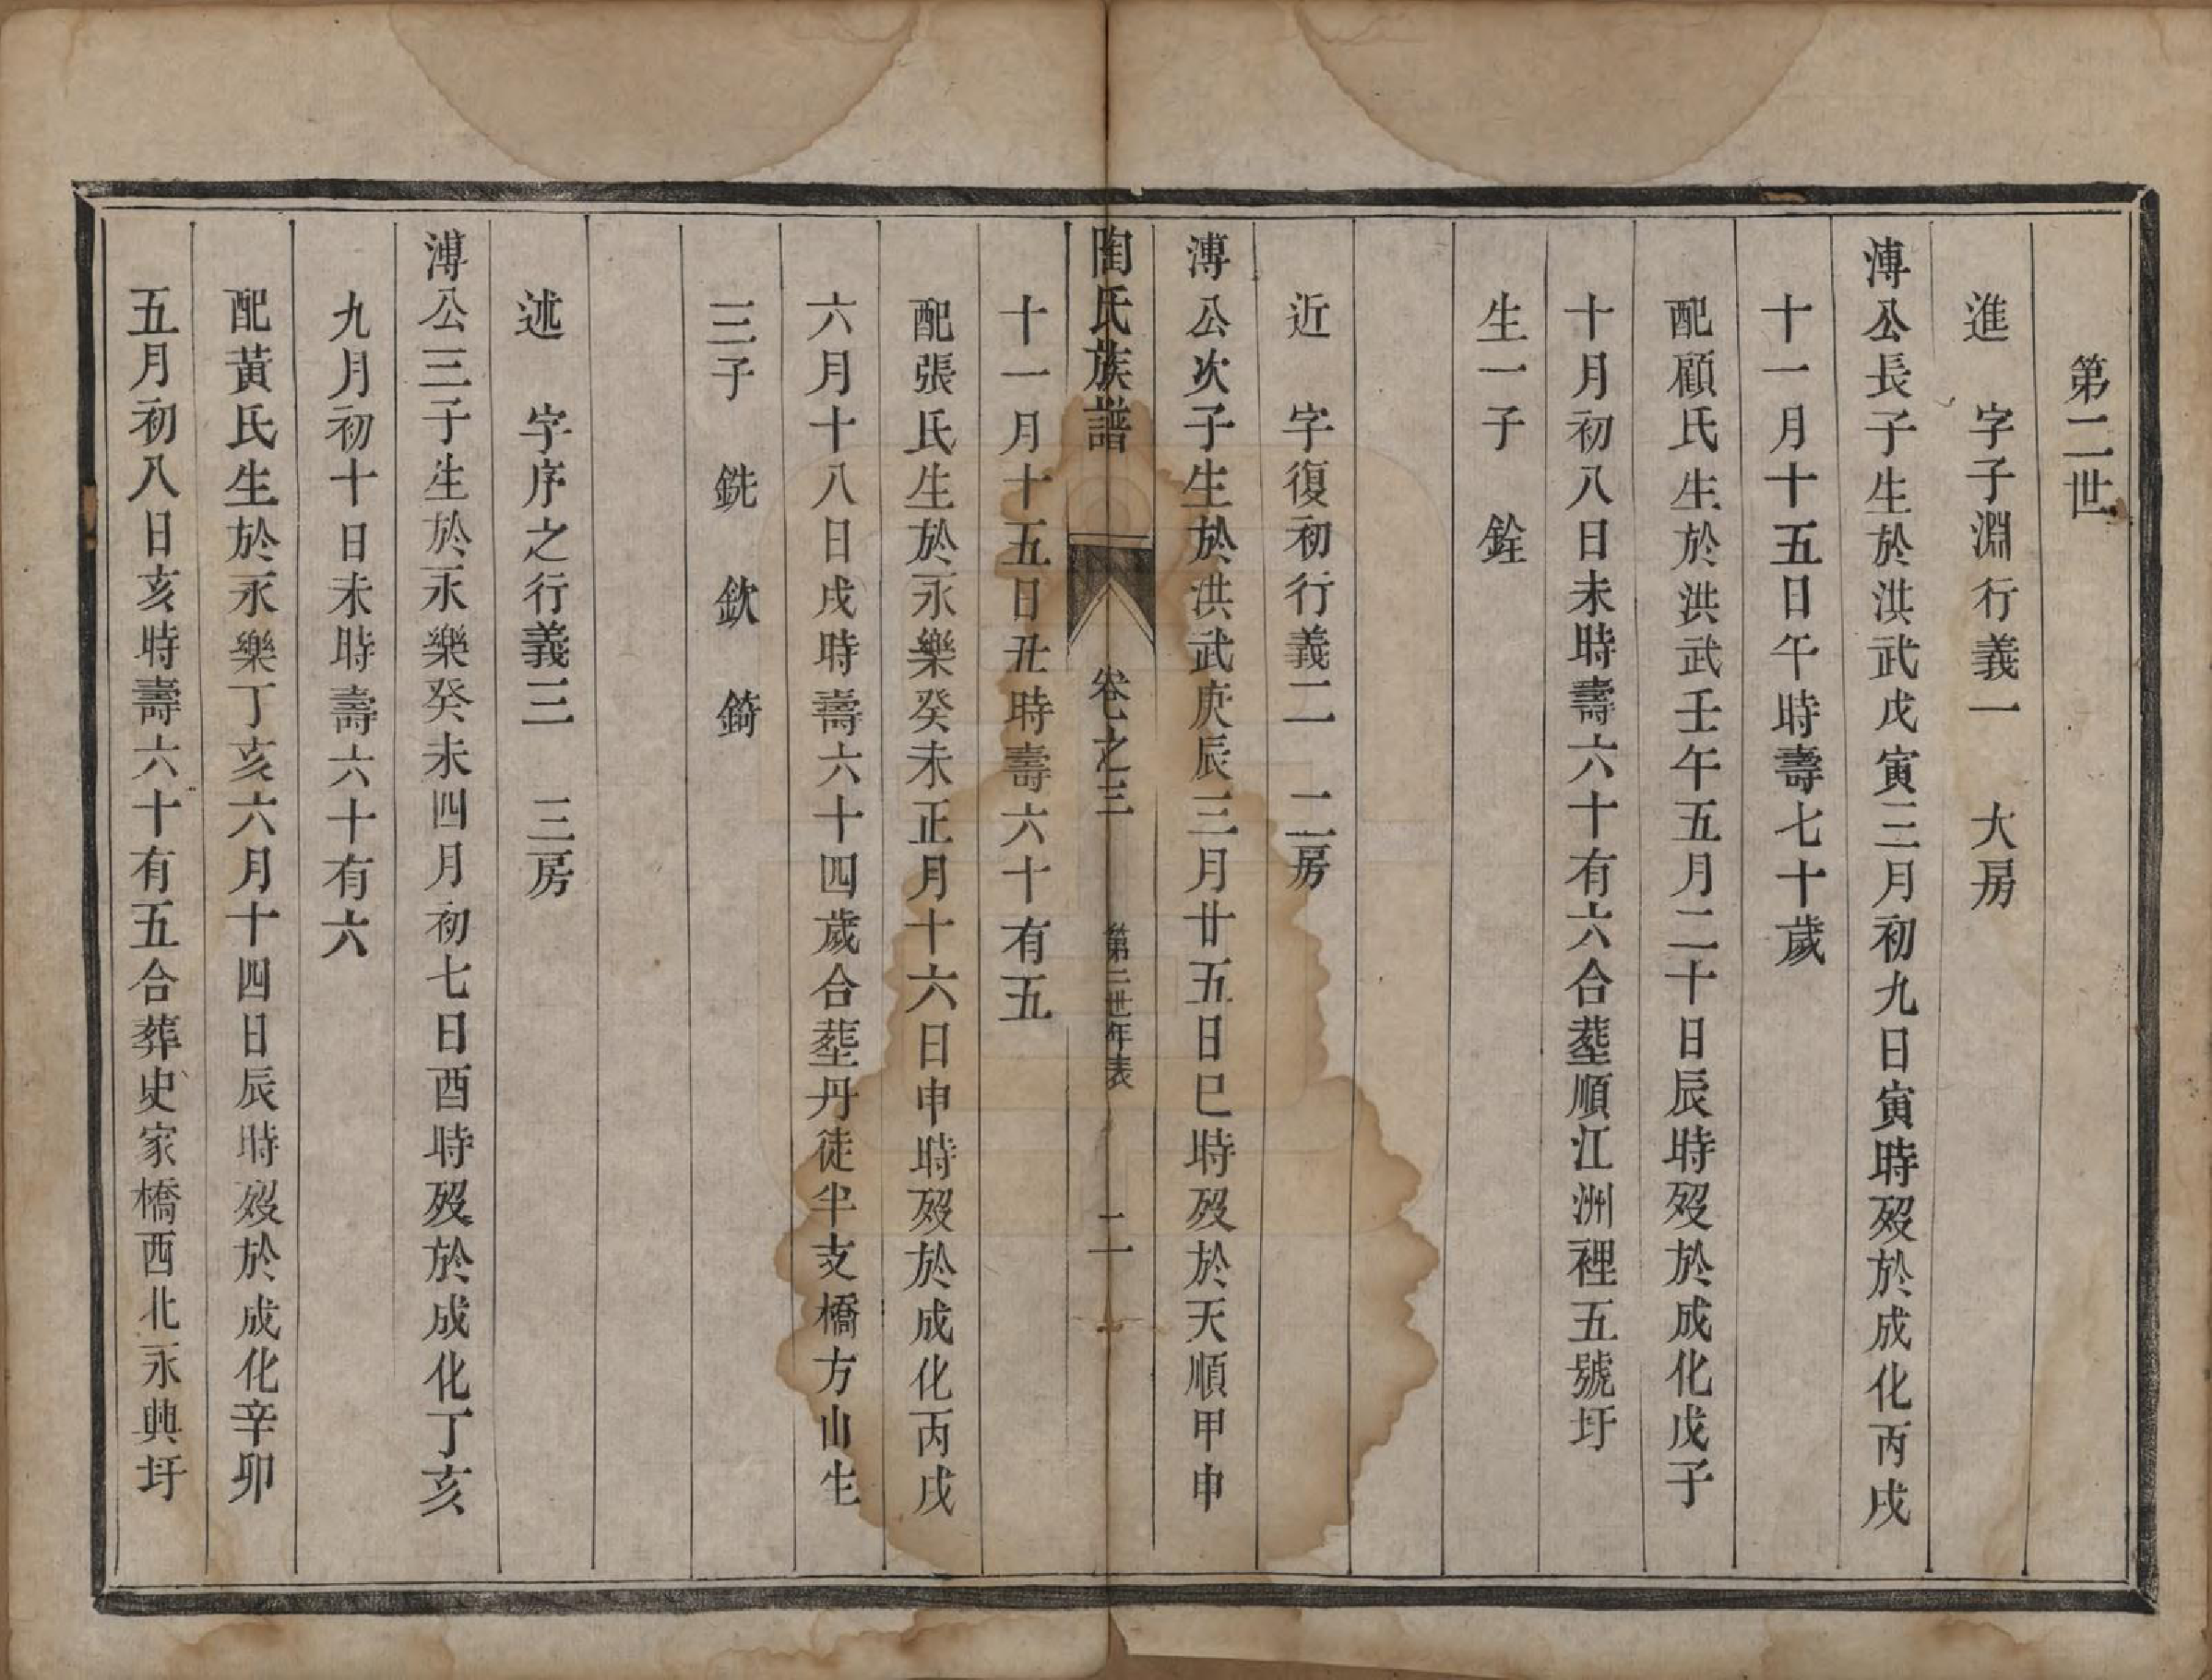 第二世
進　字子淵行義一　大房
溥公長子生於洪武戊寅三月初九日寅時歿於成化丙戌
十一月十五日午時壽七十歲
配顧氏生於洪武壬午五月二十日辰時歿於成化戊子
十月初八日未時壽六十有六合塟順江洲裡五號圩
生一子　銓
近　字復初行義二　二房
溥公次子生於洪武庚辰三月廿五日巳時歿於天順甲申
陶氏族譜　卷之三　第二世年表　二
十一月十五日丑時壽六十有五
配張氏生於永樂癸未正月十六日申時歿於成化丙戌
六月十八日戌時壽六十四歲合塟丹徒半支橋方山生
三子　銑　欽　錡
述　字序之行義三　三房
溥公三子生於永樂癸未四月初七日酉時歿於成化丁亥
九月初十日未時壽六十有六
配黃氏生於永樂丁亥六月十四日辰時歿於成化辛卯
五月初八日亥時壽六十有五合葬史家橋西北永興圩